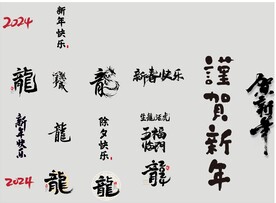 新年快乐
2024
龍
龍
新春快乐
謹賀新年
賀新年
新年快乐
龍
除夕快乐
生龍活虎
2024
龍
龍
龍